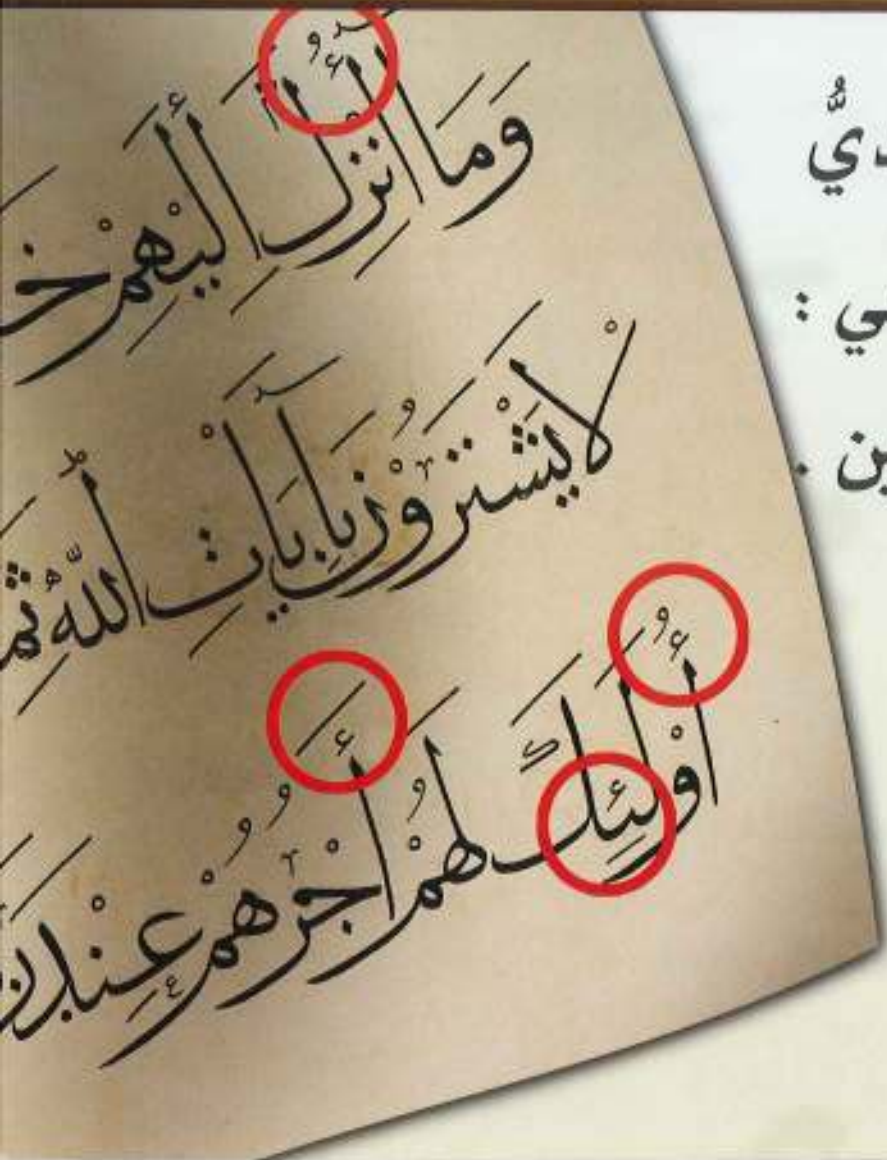 وَمَا أُنْزِلَ إِلَيْهِمْ خَـ
لَا يَشْتَرُونَ بِآيَاتِ اللَّهِ ثَمَـ
أُولَئِكَ لَهُمْ أَجْرُهُمْ عِنْدَ رَ
ـديُّ
ـي :
ـين .